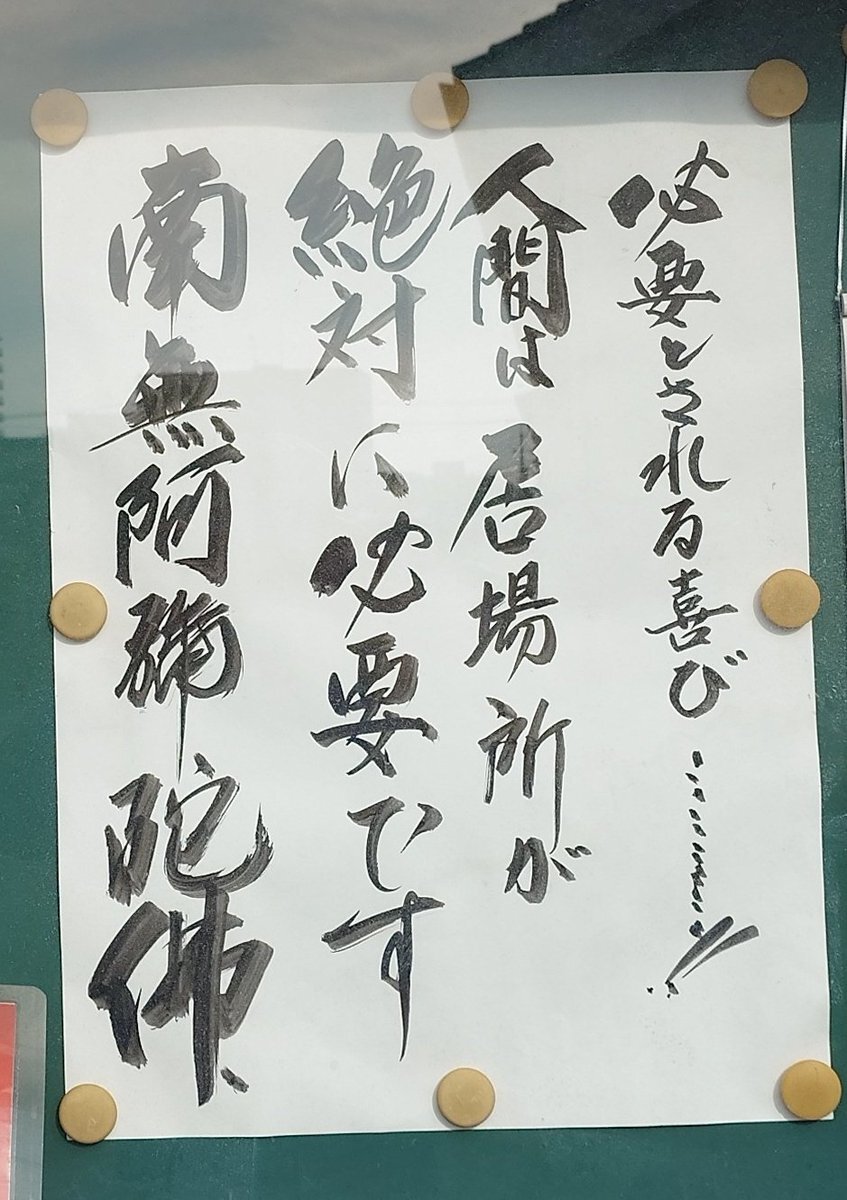 必要とされる喜び…………!!
人間は居場所が
絶対に必要です
南無阿彌陀佛